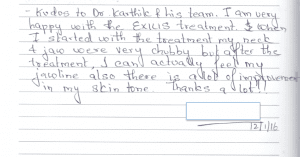 - Kudos to Dr Karthik & his team. I am very
happy with the EXILIS treatment. & when
I started with the treatment my neck
& jaw were very chubby but after the
treatment, I can actually feel my
jawline also there is a lot of improvement
in my skin tone. Thanks a lot!!
12/1/16